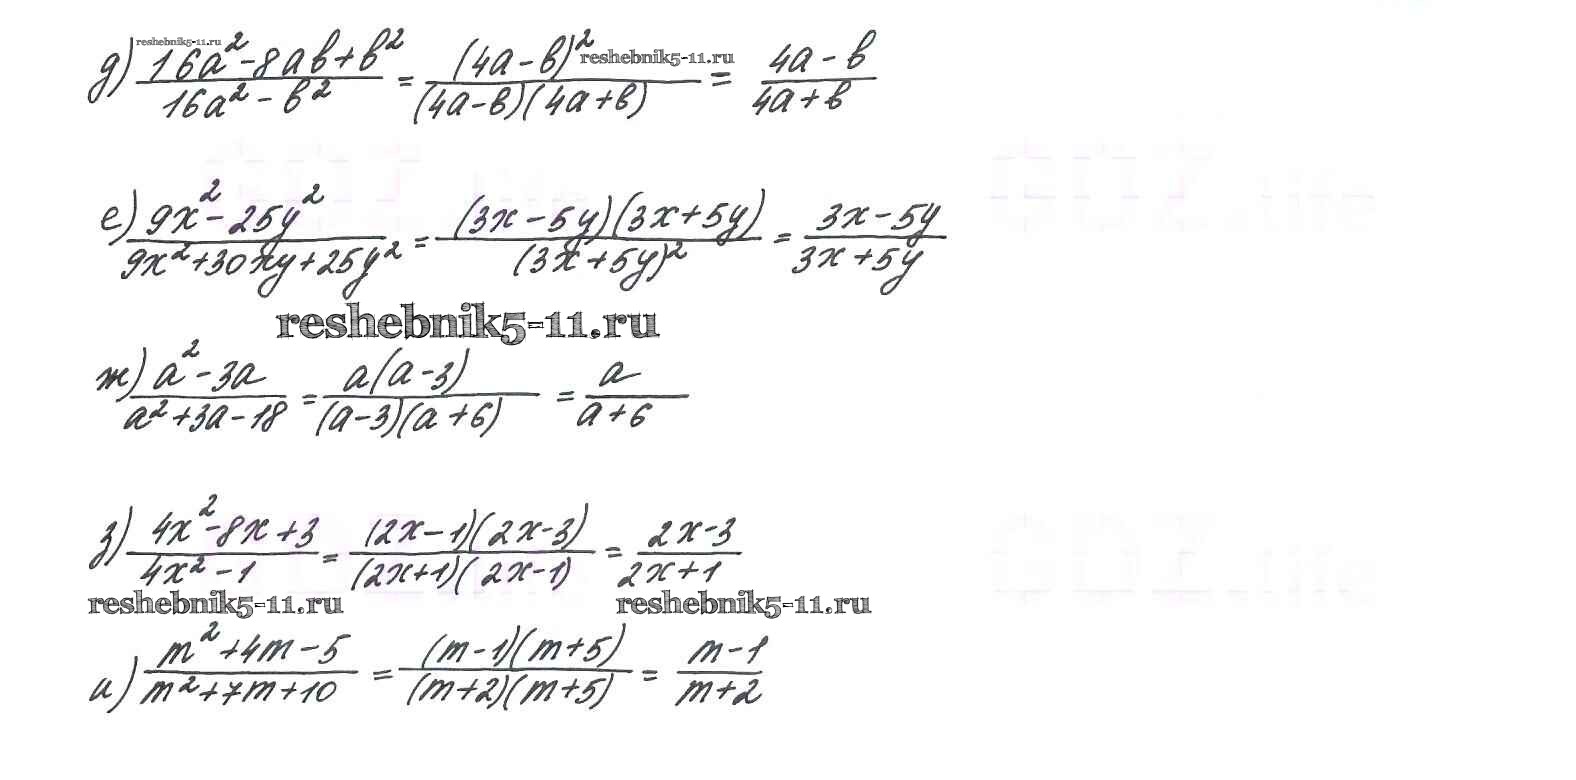 reshebnik5-11.ru
д) (16a²-8ab+b²)/(16a²-b²) = (4a-b)²/((4a-b)(4a+b)) = (4a-b)/(4a+b)
reshebnik5-11.ru
е) (9x²-25y²)/(9x²+30xy+25y²) = ((3x-5y)(3x+5y))/(3x+5y)² = (3x-5y)/(3x+5y)
reshebnik5-11.ru
ж) (a²-3a)/(a²+3a-18) = (a(a-3))/((a-3)(a+6)) = a/(a+6)
з) (4x²-8x+3)/(4x²-1) = ((2x-1)(2x-3))/((2x+1)(2x-1)) = (2x-3)/(2x+1)
reshebnik5-11.ru reshebnik5-11.ru
и) (m²+4m-5)/(m²+7m+10) = ((m-1)(m+5))/((m+2)(m+5)) = (m-1)/(m+2)